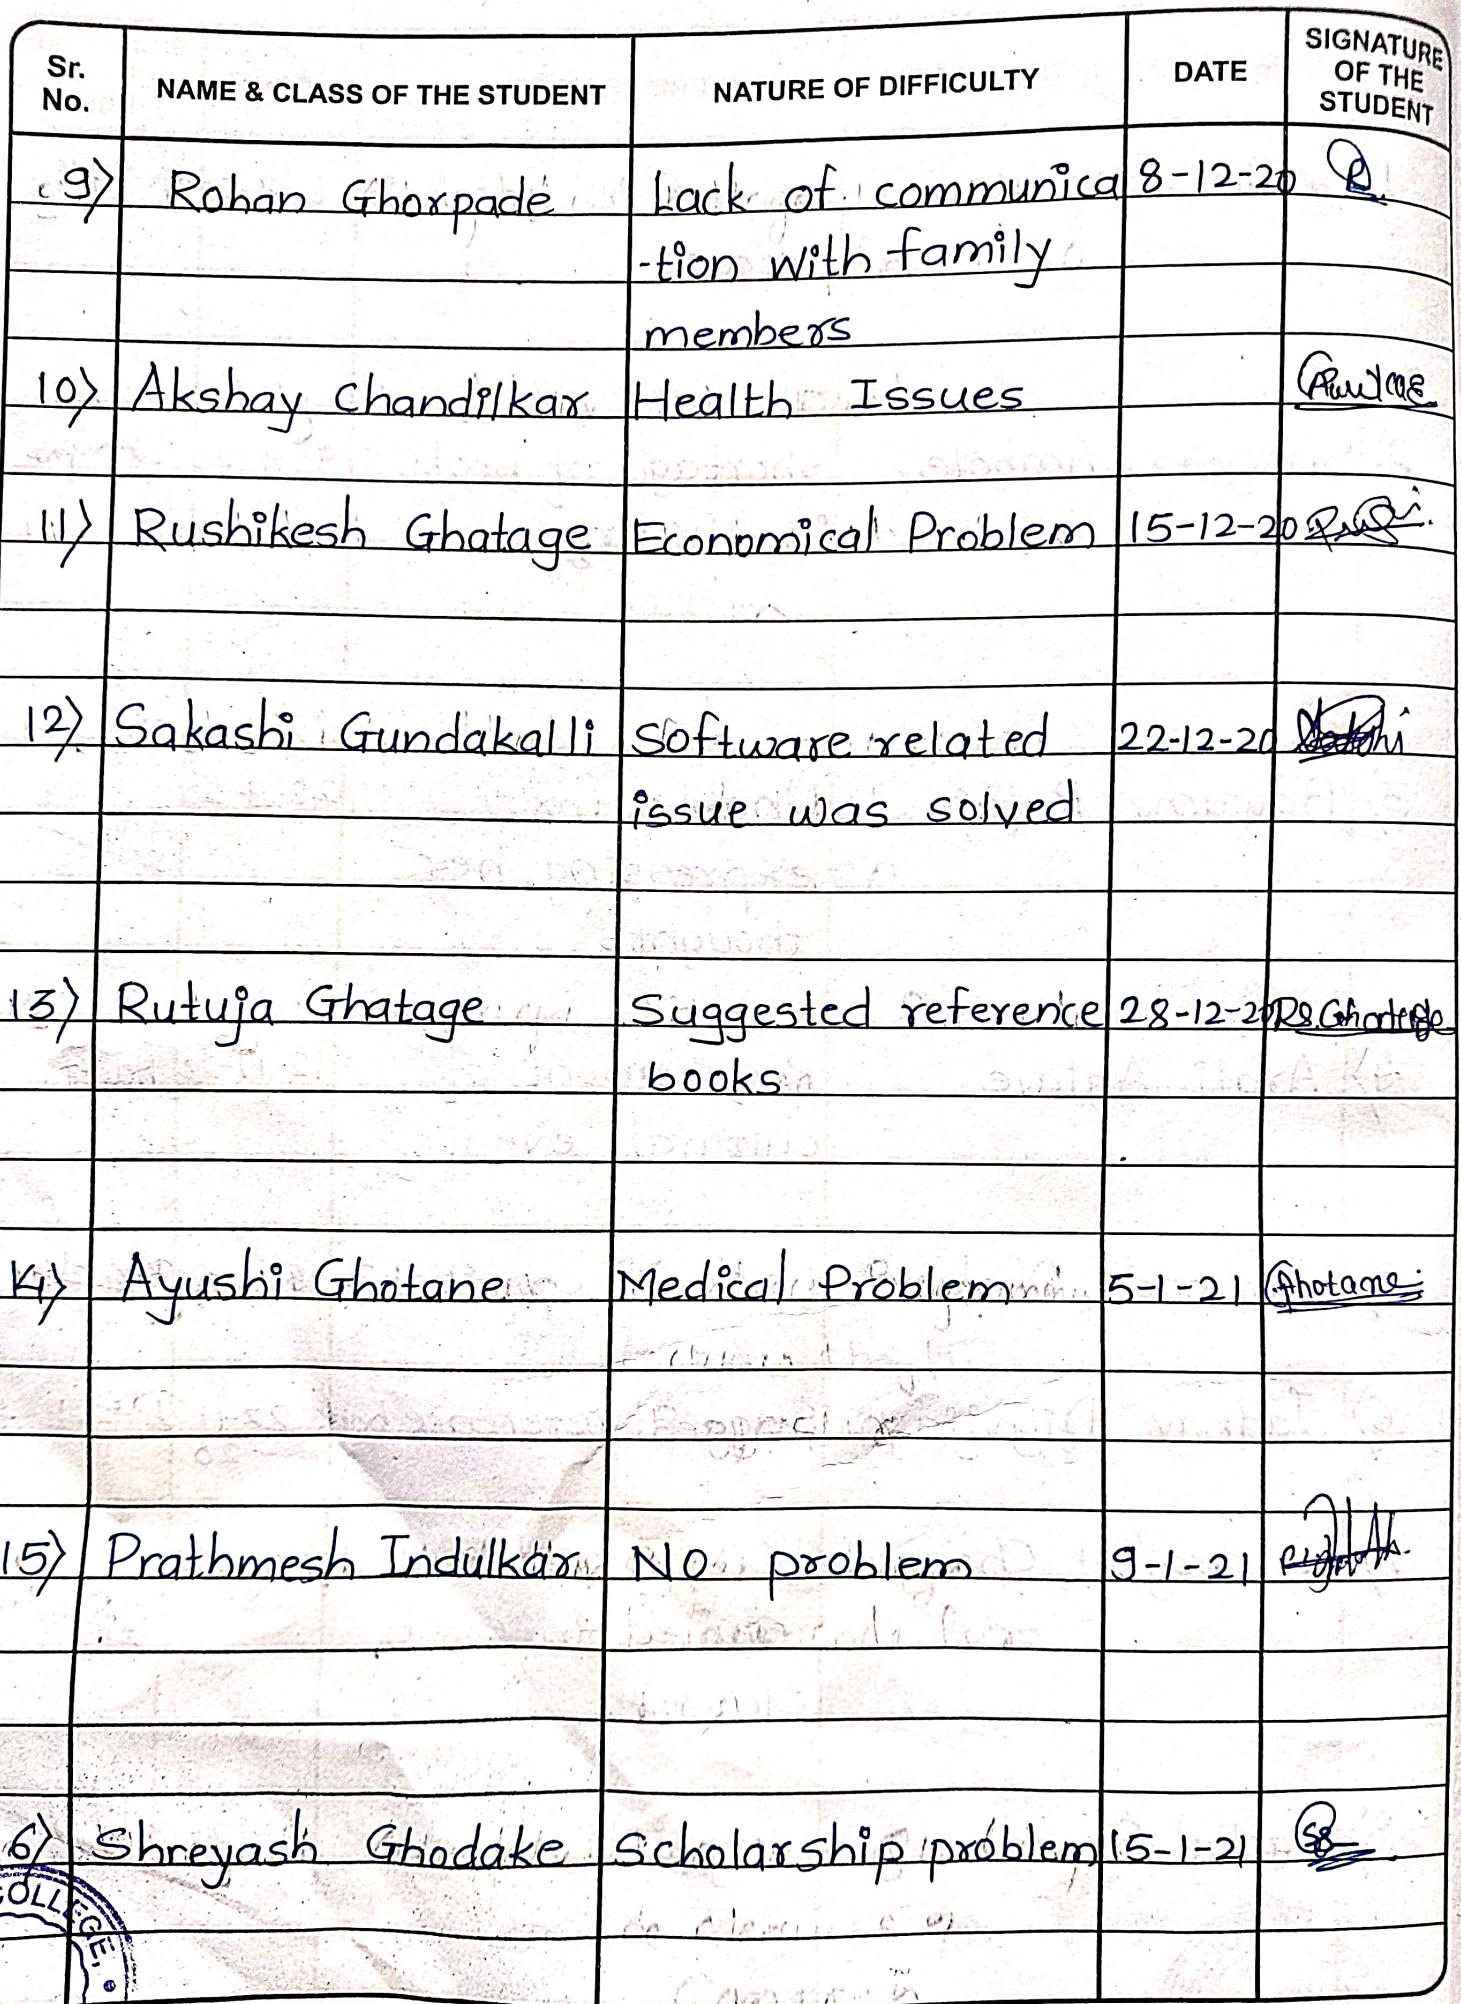 Sr. No. NAME & CLASS OF THE STUDENT NATURE OF DIFFICULTY DATE SIGNATURE OF THE STUDENT
9) Rohan Ghorpade Lack of communica 8-12-20
-tion with family
members
10) Akshay Chandilkar Health Issues
11) Rushikesh Ghatage Economical Problem 15-12-20
12) Sakashi Gundakalli Software related 22-12-20
issue was solved
13) Rutuja Ghatage Suggested reference 28-12-20 RS.Ghatage
books
14) Ayushi Ghotane Medical Problem 5-1-21 Ghotane
15) Prathmesh Indulkar No problem 9-1-21
6) Shreyash Ghodake Scholarship problem 15-1-21
OLLEGE,